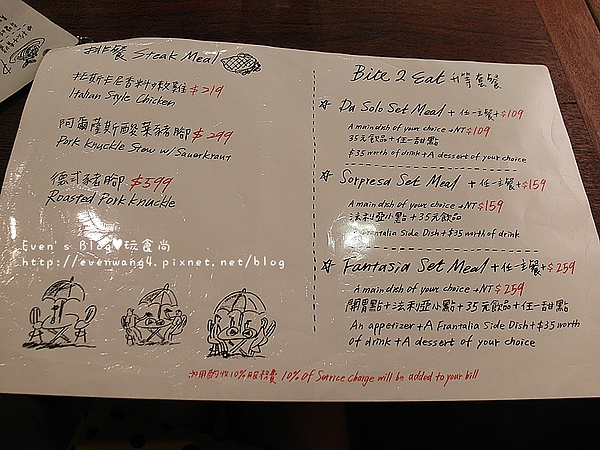 排餐 Steak Meal
托斯卡尼香料嫩雞 $219
Italian Style Chicken
阿爾薩斯酸菜豬腳 $299
Pork Knuckle Stew w/ Sauerkraut
德式豬腳 $599
Roasted Pork Knuckle
Even's Blog♥玩食尚
http://evenwang4.pixnet.net/blog
Bite 2 Eat 升等套餐
☆ Da Solo Set Meal + 任一主餐+$109
A main dish of your choice +NT$109
35元飲品+任一甜點
$35 worth of drink+A dessert of your choice
☆ Sorpresa Set Meal + 任一主餐+$159
A main dish of your choice +NT$159
法利亞小點+35元飲品
A Frantalia Side Dish+$35 worth of drink
☆ Fantasia Set Meal+任一主餐+$259
A main dish of your choice +NT$259
開胃點+法利亞小點+35元飲品+任一甜點
An appetizer+A Frantalia Side Dish+$35 worth
of drink+A dessert of your choice
10%服務費 10% of Service Charge will be added to your bill